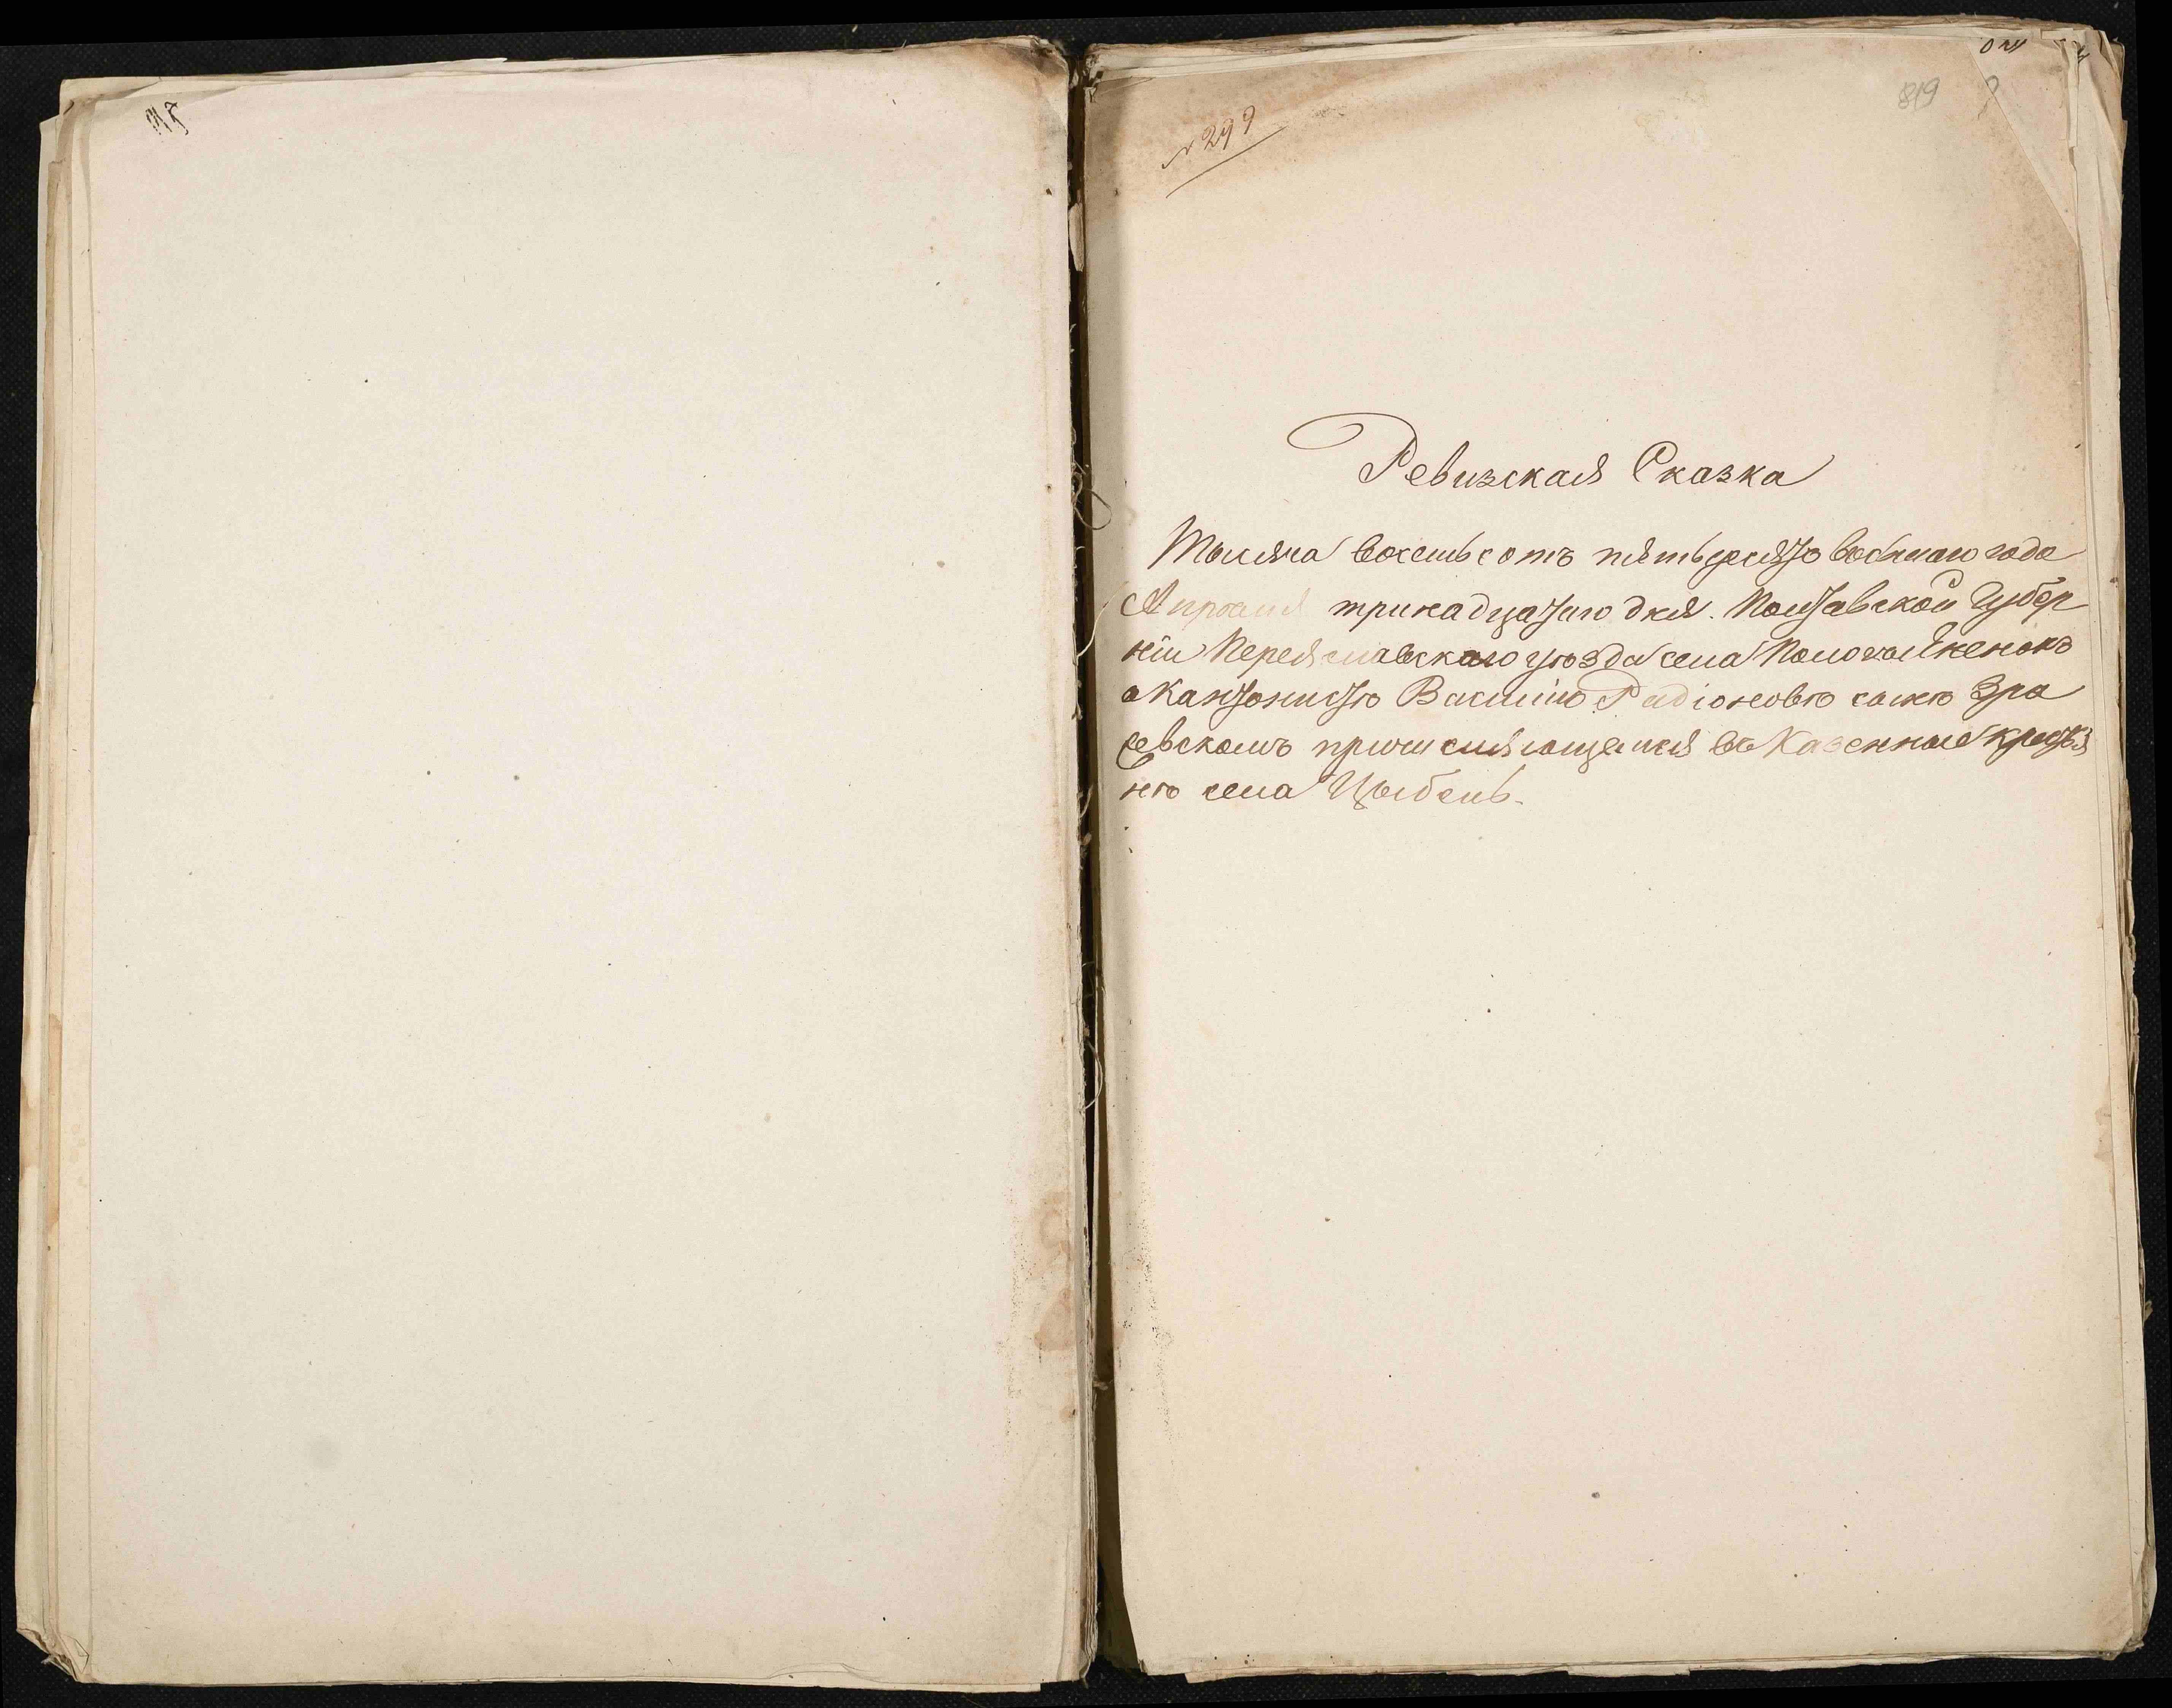 № 299
819
Ревизская Сказка
Тысяча восемьсотъ пятьдесятъ восьмаго года
Апрѣля тринадцатаго дня. Полтавской Губер
ніи Переяславскаго уѣзда села
о Кантонистѣ Василію Радіоновѣ сынѣ
причисляющемся въ Казенные крестья
не села Цыбель.